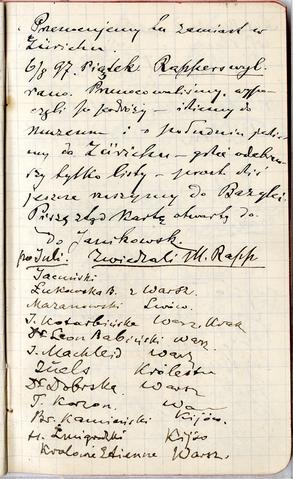 Przenocujemy tu zamiast w
Zürichu.
6/8 97. Piątek Rapperswyl.
rano. Przenocowaliśmy, wypo-
częli po podróży – idziemy do
muzeum i o południu jedzie-
my do Zürichu – gdzie odebraw-
szy tylko listy – prosto dziś
jeszcze ruszymy do Bazylei.
Piszę ztąd kartę otwartą do
Do Janikowsk.
po Juli. Zwiedzali M. Rapp
Jasiński
Łukowska B. z Warsz.
Mazanowski Lwów.
J. Kotarbińska Warsz. Krak
Dr Leon Babiński Warsz.
J. Machlejd Warsz
Królestw
Dr Dobrska Warsz
T. Korzon. Wa
Br. Kamieński Kijów.
H. Żmigrodzki Kijów
Karolowie Etienne Warsz.